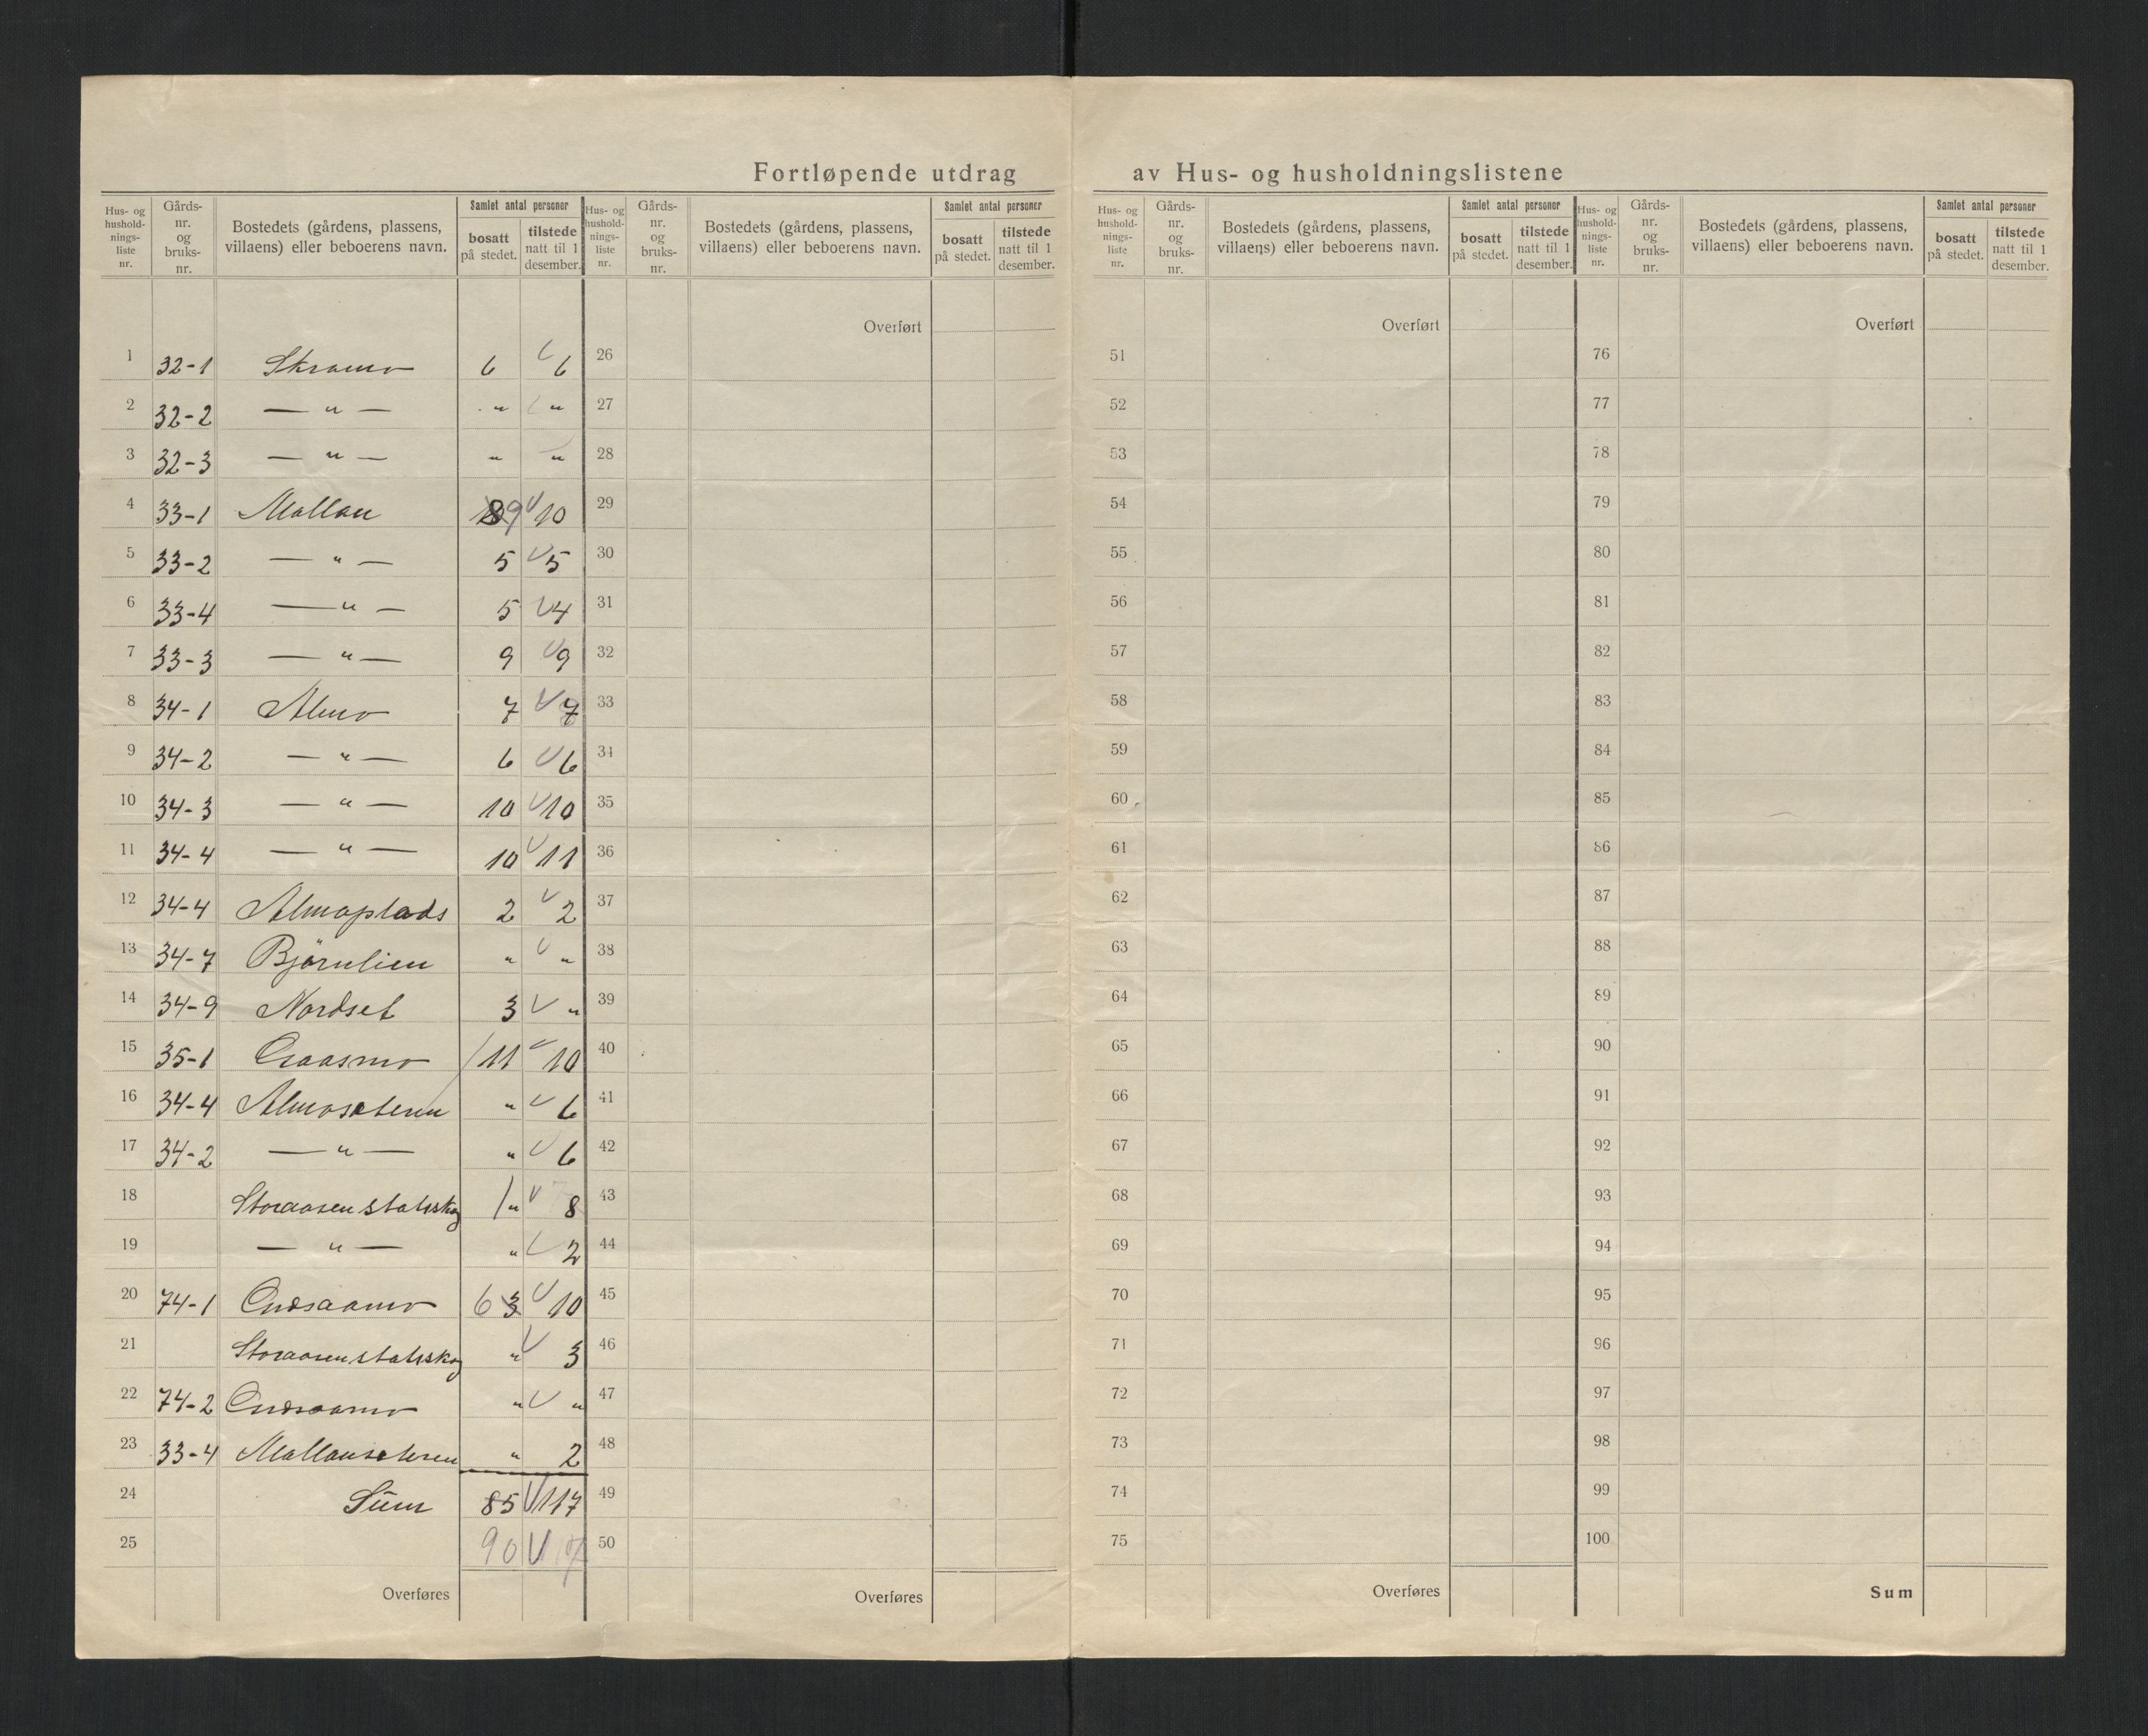 Fortløpende utdrag av Hus- og husholdningslistene
Hus- og hushold-nings-liste nr. | Gårds-nr. og bruks-nr. | Bostedets (gårdens, plassens, villaens) eller beboerens navn. | Samlet antal personer | bosatt på stedet. | tilstede natt til 1 desember.
Hus- og hushold-nings-liste nr. | Gårds-nr. og bruks-nr. | Bostedets (gårdens, plassens, villaens) eller beboerens navn. | Samlet antal personer | bosatt på stedet. | tilstede natt til 1 desember.
Hus- og hushold-nings-liste nr. | Gårds-nr. og bruks-nr. | Bostedets (gårdens, plassens, villaens) eller beboerens navn. | Samlet antal personer | bosatt på stedet. | tilstede natt til 1 desember.
Hus- og hushold-nings-liste nr. | Gårds-nr. og bruks-nr. | Bostedets (gårdens, plassens, villaens) eller beboerens navn. | Samlet antal personer | bosatt på stedet. | tilstede natt til 1 desember.
1 32-1 Skramo 6 6
2 32-2 — " — " "
3 32-3 — " — " "
4 33-1 Mallan 8 9 10
5 33-2 — " — 5 5
6 33-4 — " — 5 4
7 33-3 — " — 9 9
8 34-1 Almo 7 7
9 34-2 — " — 6 6
10 34-3 — " — 10 10
11 34-4 — " — 10 11
12 34-4 Almoplads 2 2
13 34-7 Björnlien " "
14 34-9 Nordset 3 "
15 35-1 11 10
16 34-4 Almoseteren " 6
17 34-2 — " — " 6
18 Storaasen statsskog " 8
19 — " — " 2
20 74-1 6 3 10
21 Storaasen statsskog " 3
22 74-2 " "
23 33-4 Mallanseteren " 2
24 Sum 85 117
25 90
Overføres
Overført
26
27
28
29
30
31
32
33
34
35
36
37
38
39
40
41
42
43
44
45
46
47
48
49
50
Overføres
Overført
51
52
53
54
55
56
57
58
59
60
61
62
63
64
65
66
67
68
69
70
71
72
73
74
75
Overføres
Overført
76
77
78
79
80
81
82
83
84
85
86
87
88
89
90
91
92
93
94
95
96
97
98
99
100
Sum